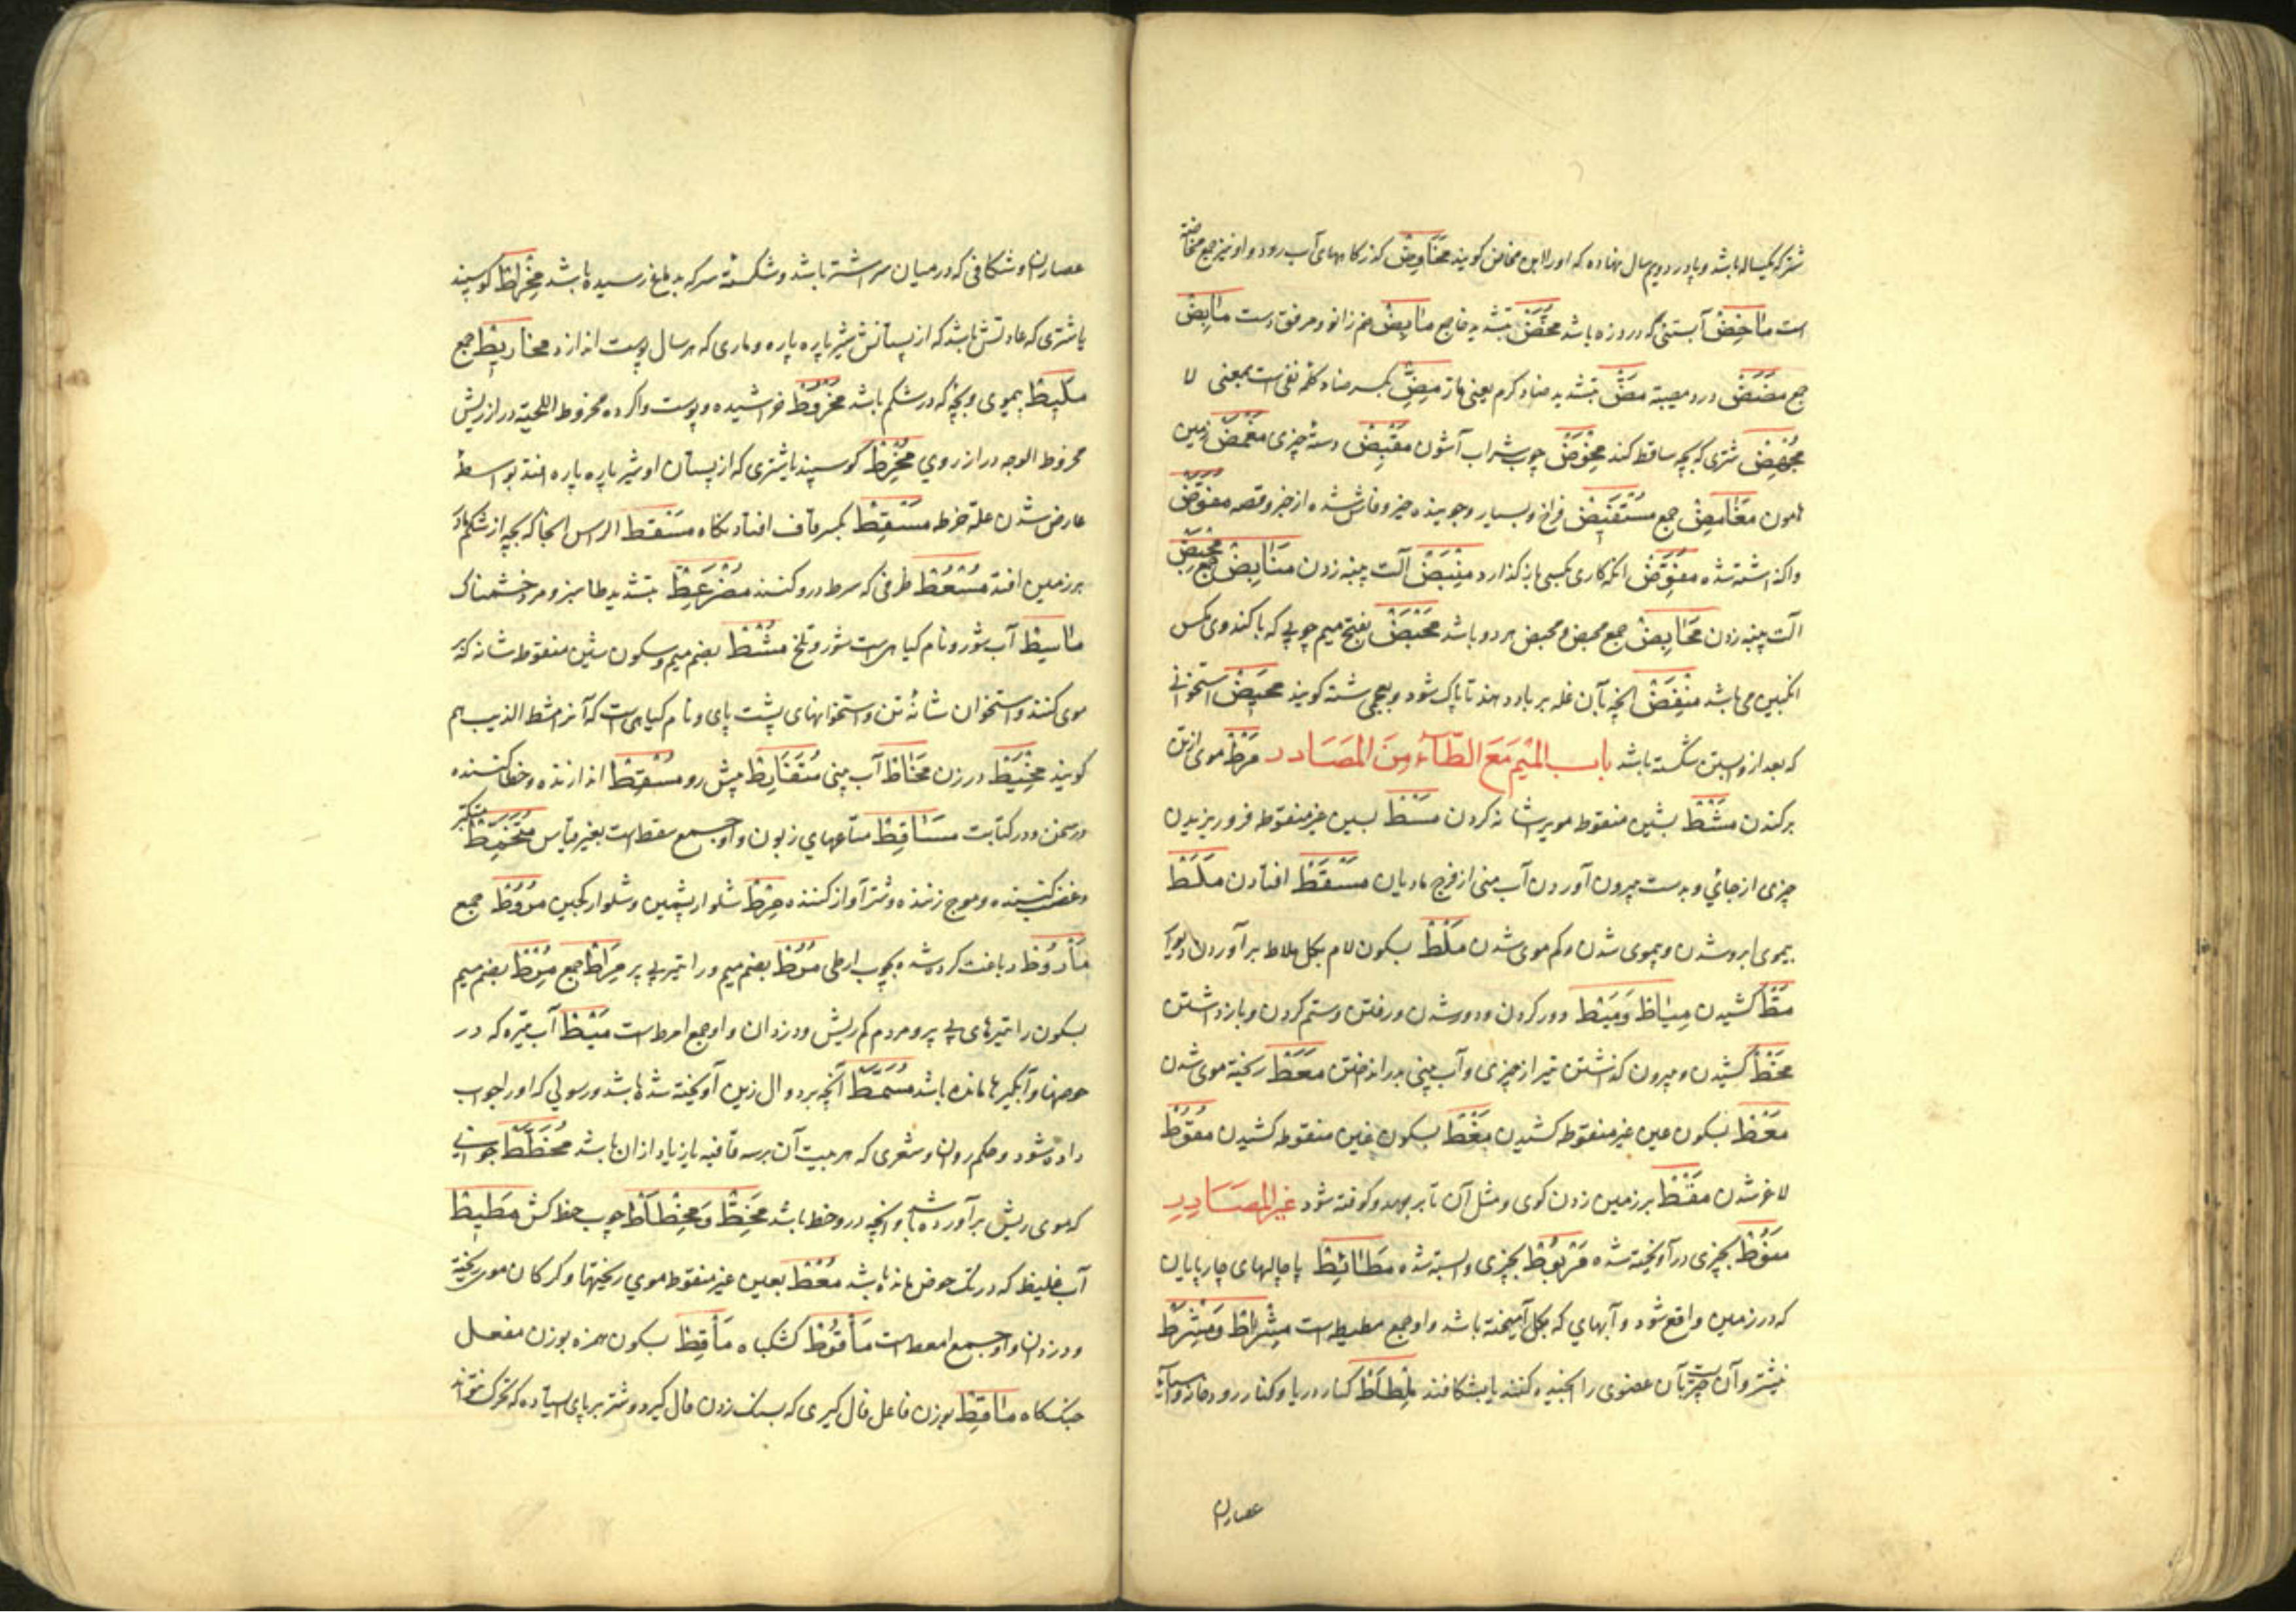 شتر که یکساله باشد و پا در دویم سال نهاده که او را ابن مخاض گویند مَخَاوِض گذرگاههای آب رود و او نیز جمع مخاضة
است مَاخِض آبستنی که درو زه باشد مُخَّض بتشدید خا جمع مَابِض خم زانو و مرفق دست مَآبِض
جمع مَضَض درد مصیبة مَضّ بتشدید ضاد گرم یعنی حار مِضِّ بکسر ضاد کلمه نفی است بمعنی لا
مُجْهِض شتری که بچه ساقط کند مِخْوَض چوب شراب آشون مَقْبِض دستهٔ چیزی مَغْمَض زمین
هامون مَغَامِض جمع مُسْتَفِیض فراخ و بسیار و جوینده چیز و فاش شده از خبر و قصه مُفَوَّض
واگذاشته شده مُفَوِّض آنکه کاری بکسی باز گذارد مِنْبَض آلت پنبه زدن مَنَابِض جمع مِحْبَض
آلت پنبه زدن مَحَابِض جمع محبض و محبض هر دو باشد مَحْبَض بفتح میم چوبی که با کندوی مگس
انگبین می باشد مِنْفَض آنچه بآن غله بر باد دهند تا پاک شود و بعجمی شنه گویند مَهِیض استخوانی
که بعد از وبستن شکسته باشد باب المیم مَعَ الطّآء مِنَ المَصَادر مَرْط موی از تن
برکندن مَشْط بشین منقوطه موی را شانه کردن مَسْط بسین غیر منقوطه فرو ریزیدن
چیزی از جائی و بدست بیرون آوردن آب منی از فرج مادیان مَسْقَط افتادن مَلَط
بیموی ابرو شدن و بیموی شدن و کم موی شدن مَلْط بسکون لام بگل ملاط برآوردن دیوار
مَطّ کشیدن مِیَاط وَ مَیْط دور کردن و دور شدن و رفتن و ستم کردن و باز داشتن
مَخْط کشیدن و بیرون گذشتن تیر از چیزی و آب بینی در انداختن مَعَط ریخته موی شدن
مَعْط بسکون عین غیر منقوطه کشیدن مَغْط بسکون غین منقوطه کشیدن مُقُوط
لاغر شدن مَقْط بر زمین زدن گوی و مثل آن تا بر جهد و کوفته شود غیر المصَادِر
مَنُوط بچیزی در آویخته شده مَرْبُوط بچیزی وابسته شده مَطَائِط پاچالهای چارپایان
که در زمین واقع شود و آبهای که بگل آمیخته باشد و او جمع مطیط است مِشْرَاط وَ مِشْرَط
نیشتر و آن چیزیست بآن عضوی را آجیده کنند یا بشکافند مِلْطَاط کنار دریا و کنار رود خانه و آسیای
عصاران
عصاران و شکافی که در میان سر اشتر باشد و شکسته سر که بدماغ رسیده باشد مِخْرَاط گوسپند
یا شتری که عادتش باشد که از پستانش شیر پاره پاره و ماری که هر سال پوست اندازد مخاریط جمع
مَلِیط بیموی و بچه که در شکم باشد مَخْرُوط خراشیده و پوست واکرده مخروط اللحیة دراز ریش
مخروط الوجه دراز روی مُخْرِط گوسپند یا شتری که از پستان او شیر پاره پاره افتد بواسطهٔ
عارض شدن علة خرط مَسْقِط بکسر قاف افتادنگاه مَسْقط الراس آنجا که بچه از شکم مادر
بر زمین افتد مُسْعُط ظرفی که سعوط درو کنند مُضْرَغِطّ بتشدید طا سبز و مرد خشمناک
مَاسِط آب شور و نام گیاهیست شور و تلخ مُشْط بضم میم و سکون شین منقوطه شانه که
موی کنند و استخوان شانهٔ تن و استخوانهای پشت پای و نام گیاهی است که آنرا مشط الذیب هم
گویند مِخْیَط درزن مُخَاط آب بینی مُتَقَابِط پیش رو مُسْقِط اندازنده و خطا کننده
در سخن و در کتابت مَسَاقِط متاعهای زبون و او جمع سقط است بغیر قیاس مُتَخَمِّط متکبر
و غضب کننده و موج زننده و شتر آواز کننده مِرْط شلوار پشمین و شلوار کجین مُرُوط جمع
مَأرُوط دباغت کرده شده بچوب ارطی مُرُط بضم میم و را تیر بی پر مِرَاط جمع مُرْط بضم میم
بسکون را تیرهای بی پر و مردم کم ریش و دزدان و او جمع امرط است مَیْط آب تیره که در
حوضها و آبگیرها مانده باشد مُسَمَّط آنچه بر دوال زین آویخته شده باشد و رسولی که او را جواب
داده شود و حکم روان و شعری که هر بیت آن بر سه قافیه یا زیاد از آن باشد مُخَطَّط جوانی
که موی ریش برآورده باشد و آنچه درو خط باشد مِخَطّ وَ مِخْطَاط چوب خط کش مَطِیط
آب غلیظ که در تک حوض مانده باشد مُعْط بعین غیر منقوط موی ریختها و گرگان موی ریخته
و دزدان و او جمع امعط است مَأقُوط کشکاب مَأقِط بسکون همزه بوزن مفعل
جنگگاه مَاقِط بوزن فاعل فال گیری که بسنگ زدن فال گیرد و شتر بر پای ایستاده که حرکت نتواند